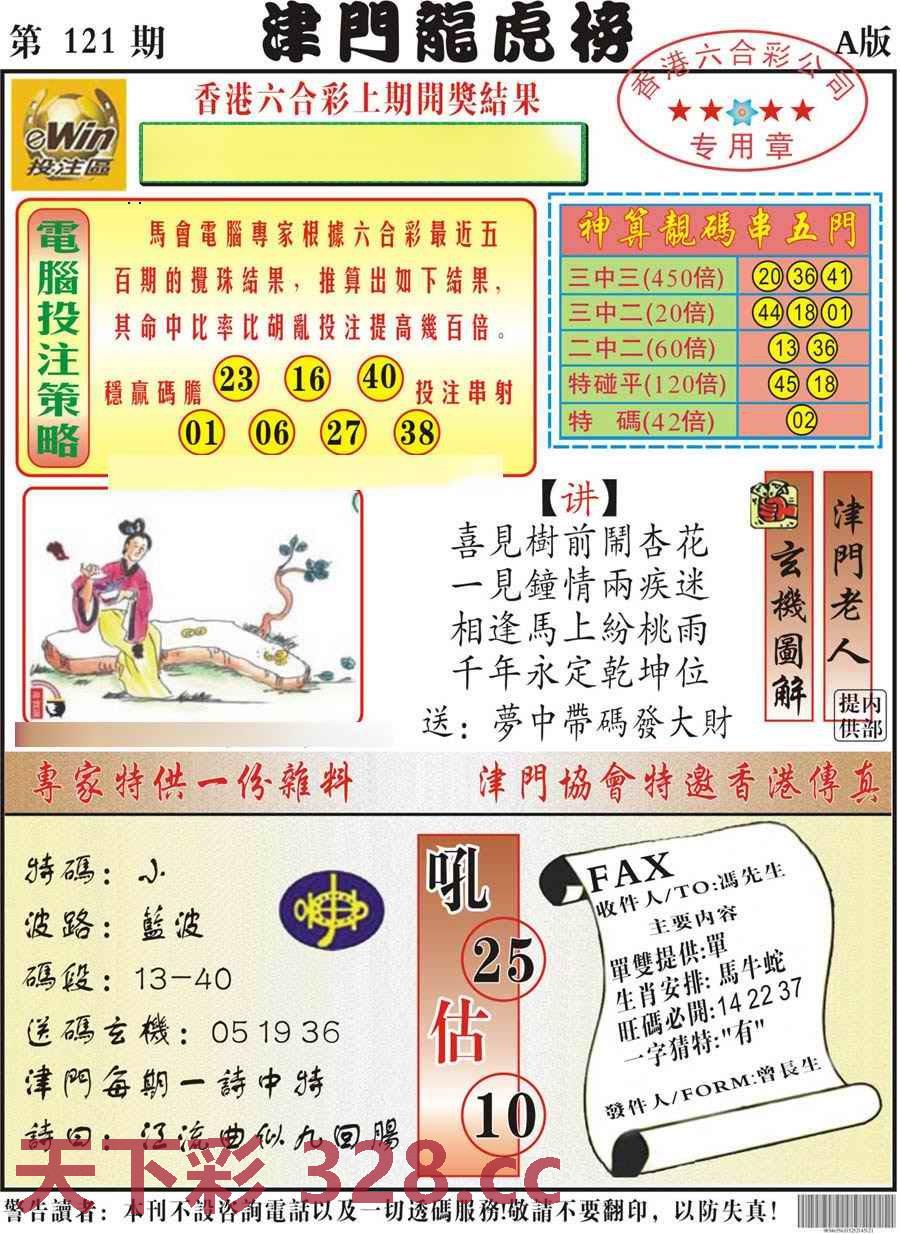 第 121 期
津門龍虎榜
A版
香港六合彩公司
专用章
eWin
投注區
香港六合彩上期開獎結果
電腦投注策略
馬會電腦專家根據六合彩最近五
百期的攪珠結果，推算出如下結果，
其命中比率比胡亂投注提高幾百倍。
穩贏碼膽 23 16 40 投注串射
01 06 27 38
神算靚碼串五門
三中三(450倍) 20 36 41
三中二(20倍) 44 18 01
二中二(60倍) 13 36
特碰平(120倍) 45 18
特 碼(42倍) 02
【讲】
喜見樹前鬧杏花
一見鐘情兩疾迷
相逢馬上紛桃雨
千年永定乾坤位
送：夢中帶碼發大財
玄機圖解
津門老人
内部提供
專家特供一份雜料
津門協會特邀香港傳真
特碼：小
波路：藍波
碼段：13-40
送碼玄機：05 19 36
津門每期一詩中特
詩曰：江流曲似九回腸
吼
25
估
10
FAX
收件人/TO:馮先生
主要内容
單雙提供:單
生肖安排: 馬牛蛇
旺碼必開:14 22 37
一字猜特:"有"
發件人/FORM:曾長生
天下彩 328.cc
警告讀者：本刊不設咨詢電話以及一切透碼服務!敬請不要翻印，以防失真!